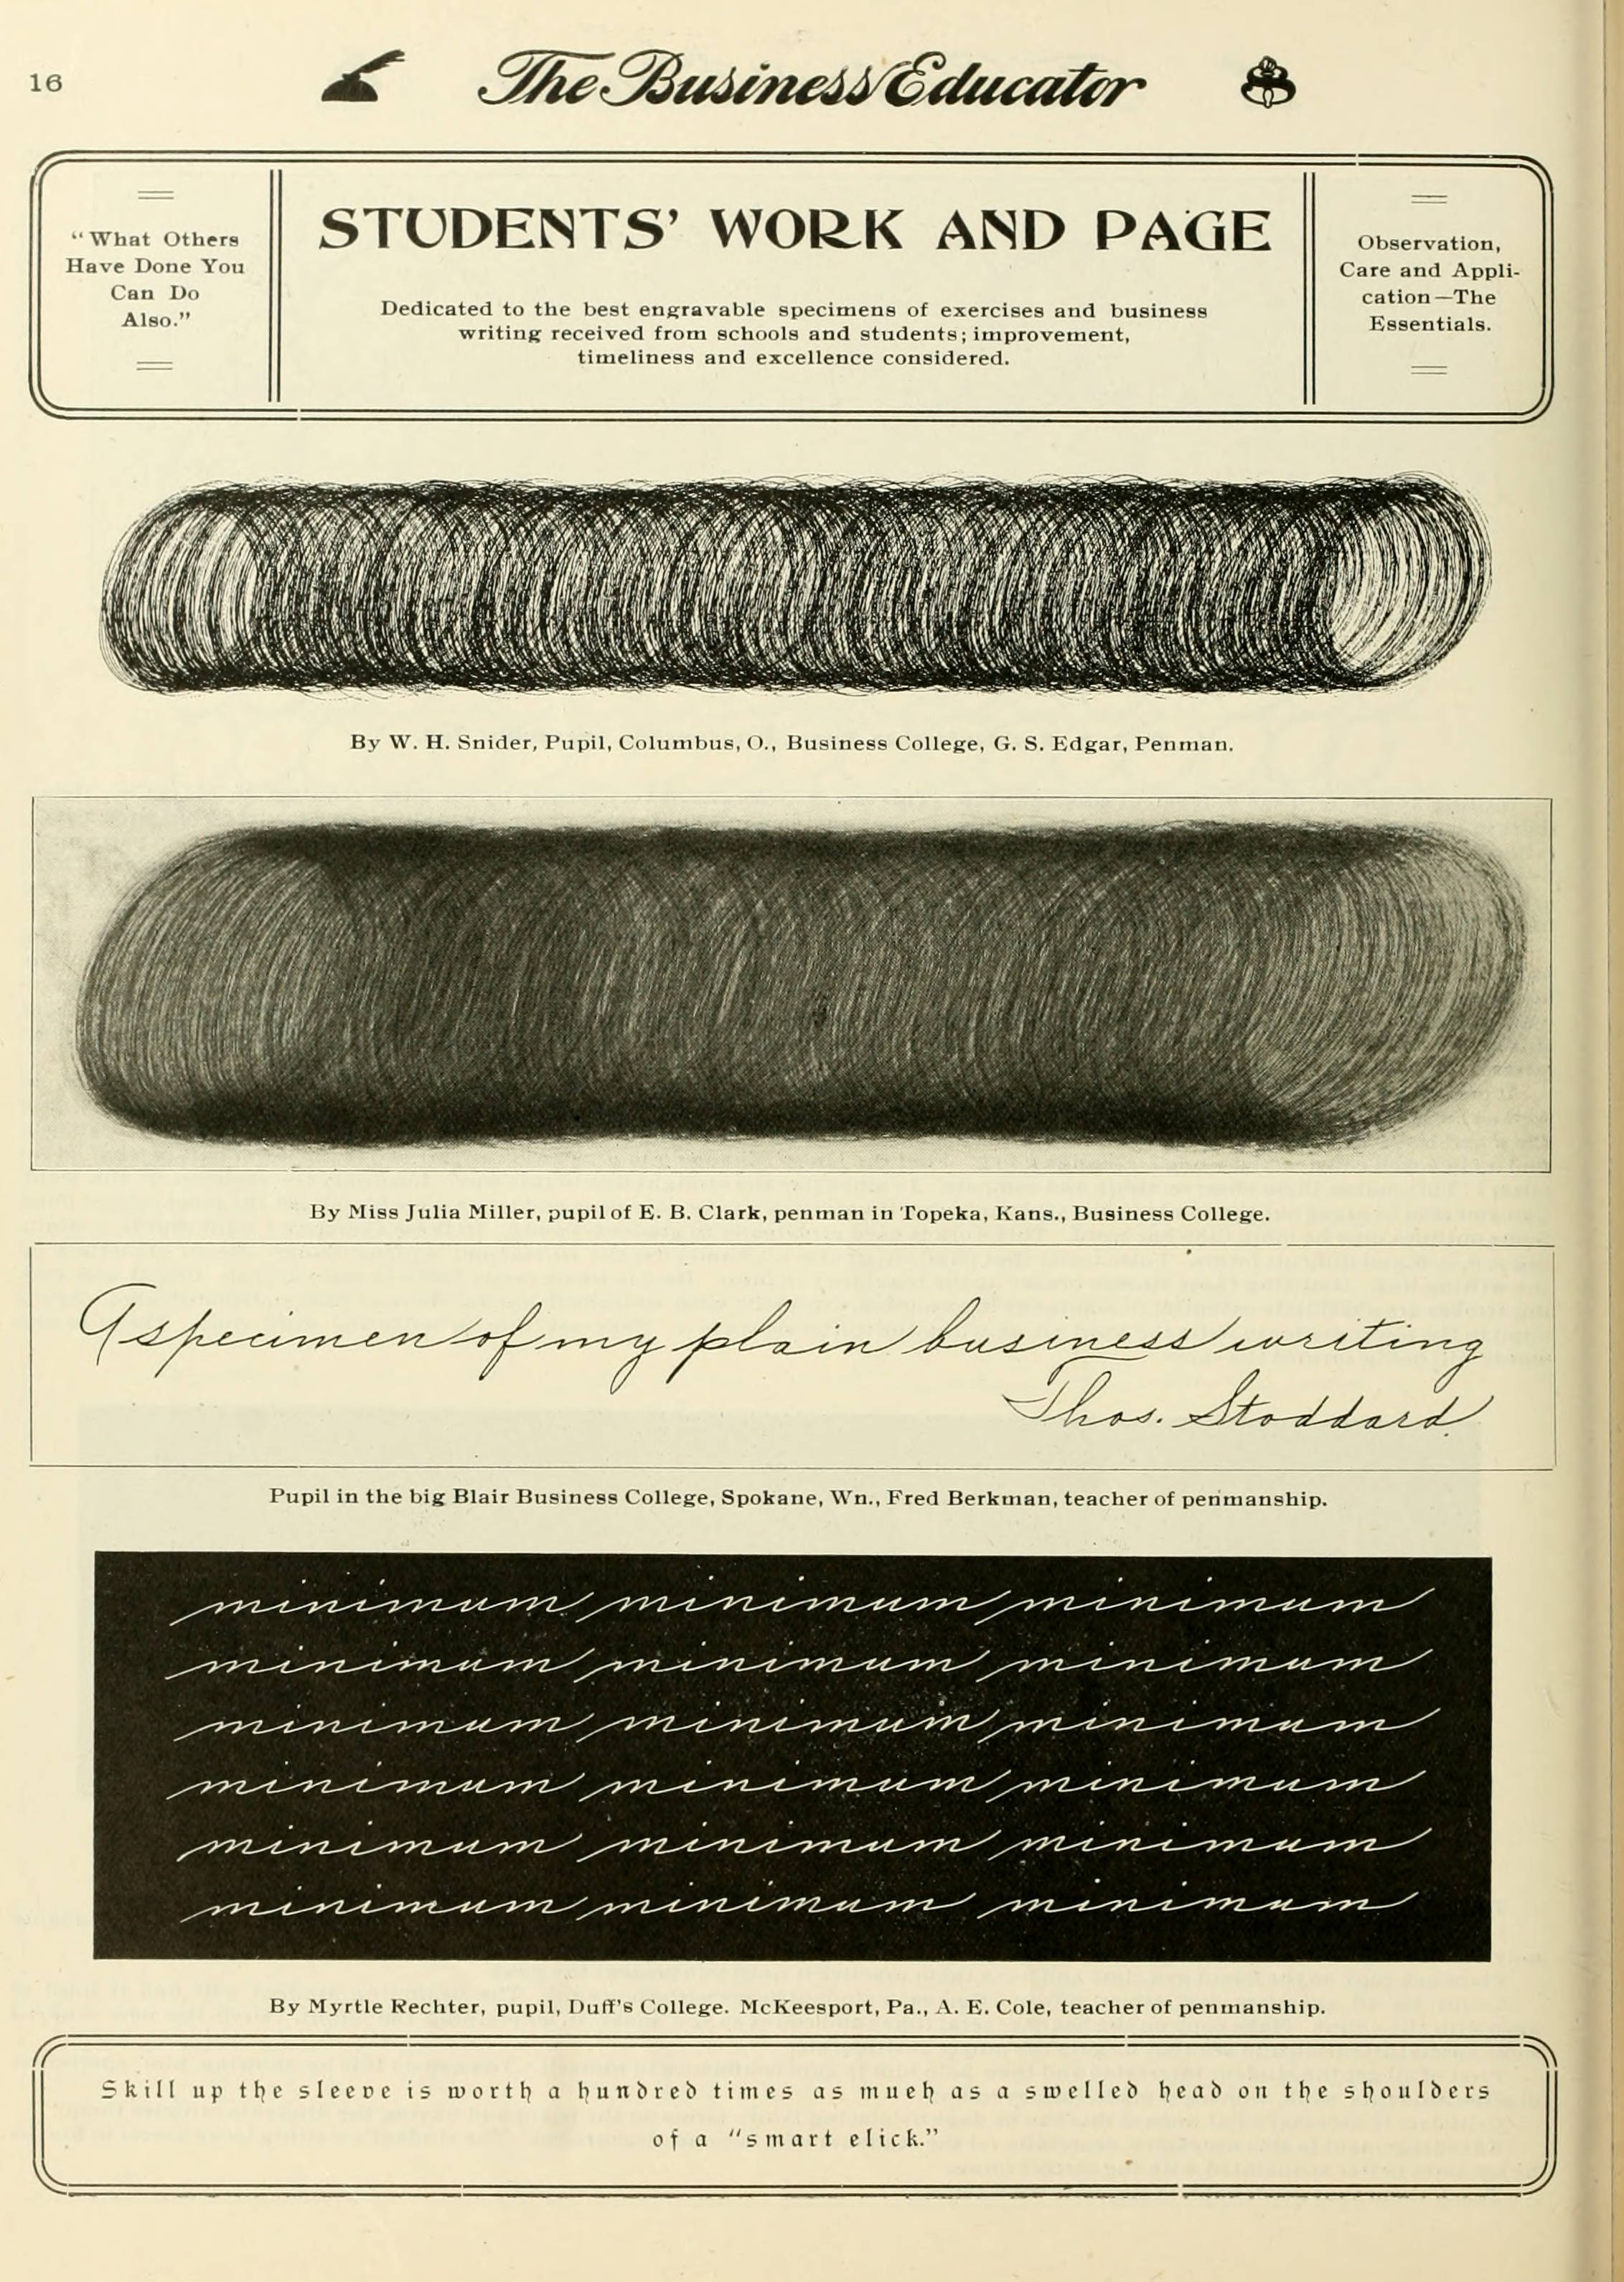 16
The Business Educator
"What Others
Have Done You
Can Do
Also."
STUDENTS' WORK AND PAGE
Dedicated to the best engravable specimens of exercises and business
writing received from schools and students; improvement,
timeliness and excellence considered.
Observation,
Care and Appli-
cation—The
Essentials.
By W. H. Snider, Pupil, Columbus, O., Business College, G. S. Edgar, Penman.
By Miss Julia Miller, pupil of E. B. Clark, penman in Topeka, Kans., Business College.
A specimen of my plain business writing
Thos. Stoddard.
Pupil in the big Blair Business College, Spokane, Wn., Fred Berkman, teacher of penmanship.
minimum minimum minimum
minimum minimum minimum
minimum minimum minimum
minimum minimum minimum
minimum minimum minimum
minimum minimum minimum
By Myrtle Rechter, pupil, Duff's College. McKeesport, Pa., A. E. Cole, teacher of penmanship.
Skill up the sleeve is worth a hundred times as much as a swelled head on the shoulders
of a "smart elick."